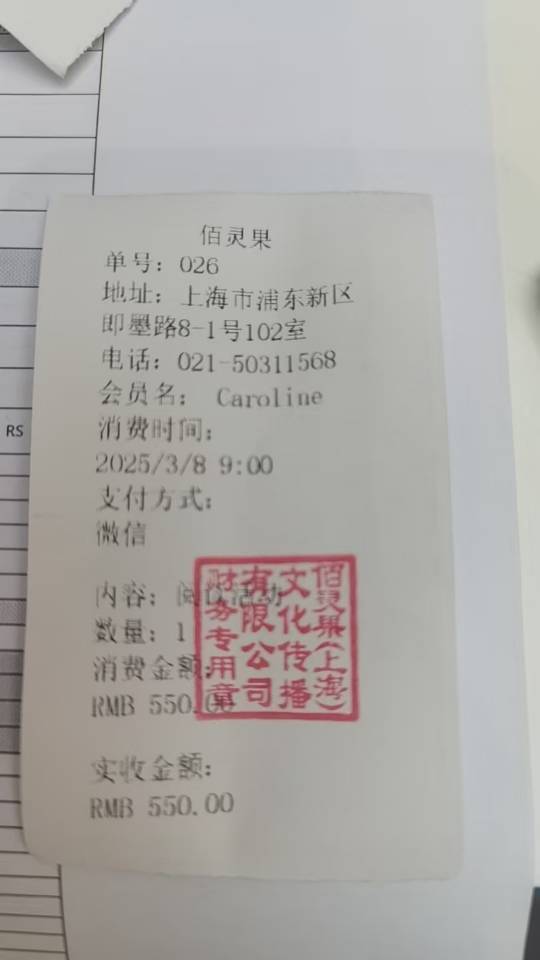 佰灵果
单号：026
地址：上海市浦东新区
即墨路8-1号102室
电话：021-50311568
会员名： Caroline
消费时间：
2025/3/8 9:00
支付方式：
微信
内容： 活动
数量：1
消费金额：
RMB 550.00
实收金额：
RMB 550.00
佰灵果(上海)
文化传播
有限公司
财务专用章
RS